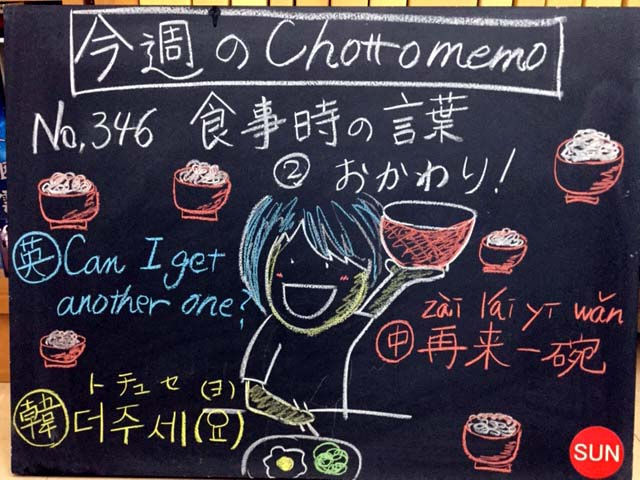 今週のChottomemo
No,346 食事時の言葉
② おかわり!
英 Can I get
another one?
zài lái yī wǎn
中 再来一碗
トチュセ(ヨ)
韓 더주세(요)
SUN